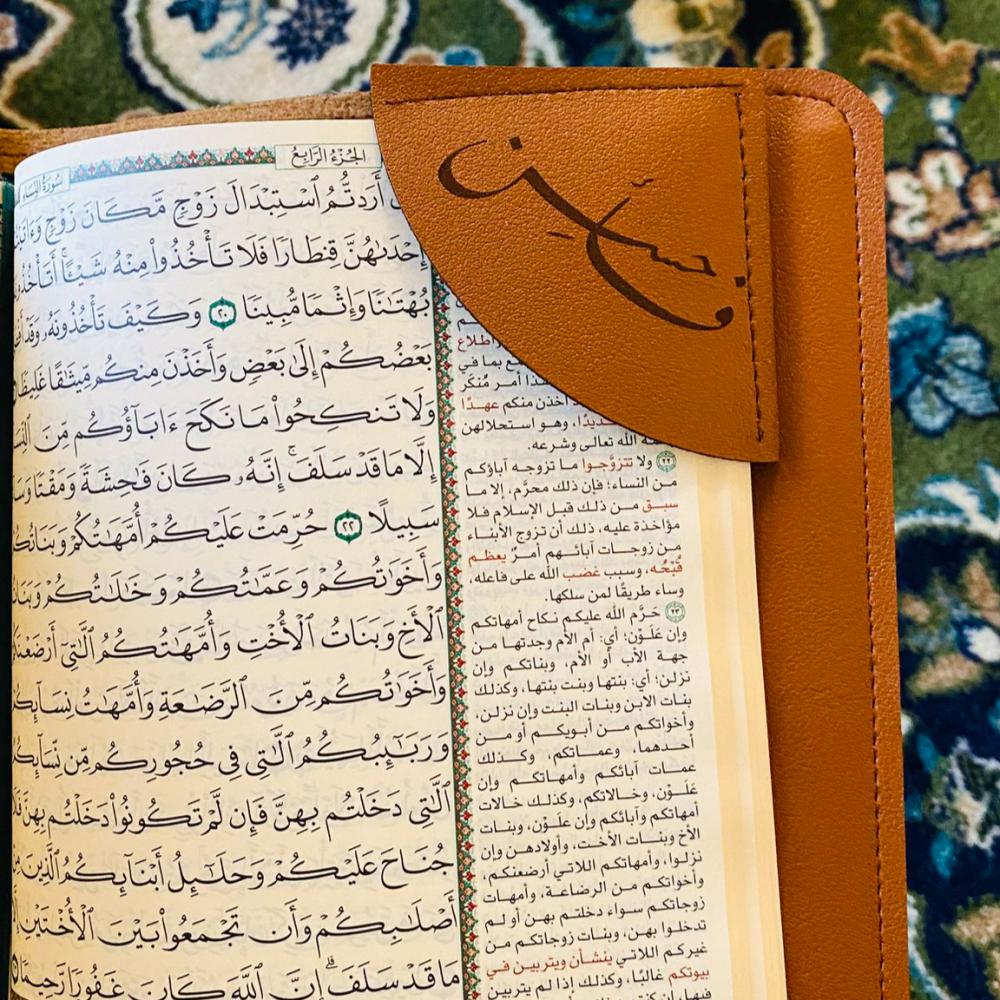 الجُزْءُ الرَّابِعُ
سُورَةُ النِّسَاءِ
أَرَدتُّمُ ٱسْتِبْدَالَ زَوْجٍ مَّكَانَ زَوْجٍ
إِحْدَىٰهُنَّ قِنطَارًا فَلَا تَأْخُذُوا۟ مِنْهُ شَيْـًٔا ۚ
بُهْتَـٰنًا وَإِثْمًا مُّبِينًا ٢٠ وَكَيْفَ تَأْخُذُونَهُۥ
بَعْضُكُمْ إِلَىٰ بَعْضٍ وَأَخَذْنَ مِنكُم مِّيثَـٰقًا غَلِيظًا
وَلَا تَنكِحُوا۟ مَا نَكَحَ ءَابَآؤُكُم مِّنَ
إِلَّا مَا قَدْ سَلَفَ ۚ إِنَّهُۥ كَانَ فَـٰحِشَةً وَمَقْتًا
سَبِيلًا ٢٢ حُرِّمَتْ عَلَيْكُمْ أُمَّهَـٰتُكُمْ وَبَنَاتُكُمْ
وَأَخَوَٰتُكُمْ وَعَمَّـٰتُكُمْ وَخَـٰلَـٰتُكُمْ
ٱلْأَخِ وَبَنَاتُ ٱلْأُخْتِ وَأُمَّهَـٰتُكُمُ ٱلَّـٰتِىٓ أَرْضَعْنَكُمْ
وَأَخَوَٰتُكُم مِّنَ ٱلرَّضَـٰعَةِ وَأُمَّهَـٰتُ نِسَآئِكُمْ
وَرَبَـٰٓئِبُكُمُ ٱلَّـٰتِى فِى حُجُورِكُم مِّن نِّسَآئِكُمُ
ٱلَّـٰتِى دَخَلْتُم بِهِنَّ فَإِن لَّمْ تَكُونُوا۟ دَخَلْتُم بِهِنَّ
جُنَاحَ عَلَيْكُمْ وَحَلَـٰٓئِلُ أَبْنَآئِكُمُ ٱلَّذِينَ
أَصْلَـٰبِكُمْ وَأَن تَجْمَعُوا۟ بَيْنَ ٱلْأُخْتَيْنِ
مَا قَدْ سَلَفَ ۗ إِنَّ ٱللَّهَ كَانَ غَفُورًا رَّحِيمًا
بما في
أمر مُنكَر
أخذن منكم عهدًا
وهو استحلالهن
الله تعالى وشرعه.
٢٢ ولا تتزوَّجوا ما تزوجه آباؤكم
من النساء؛ فإن ذلك محرَّم، إلا ما
سبق من ذلك قبل الإسلام فلا
مؤاخذة عليه، ذلك أن تزوج الأبناء
من زوجات آبائهم أمرٌ يعظم
قُبْحُه، وسبب غضب الله على فاعله،
وساء طريقًا لمن سلكها.
٢٣ حَرَّم الله عليكم نكاح أمهاتكم
وإن عَلَوْن؛ أي: أم الأم وجدتها من
جهة الأب أو الأم، وبناتكم وإن
نزلن؛ أي: بنتها وبنت بنتها، وكذلك
بنات الابن وبنات البنت وإن نزلن،
وأخواتكم من أبويكم أو من
أحدهما، وعماتكم، وكذلك
عمات آبائكم وأمهاتكم وإن
عَلَوْن، وخالاتكم، وكذلك خالات
أمهاتكم وآبائكم وإن علَوْن، وبنات
الأخ وبنات الأخت، وأولادهن وإن
نزلوا، وأمهاتكم اللاتي أرضعنكم،
وأخواتكم من الرضاعة، وأمهات
زوجاتكم سواء دخلتم بهن أو لم
تدخلوا بهن، وبنات زوجاتكم من
غيركم اللاتي ينشأن ويتربين في
بيوتكم غالبًا، وكذلك إذا لم يتربين